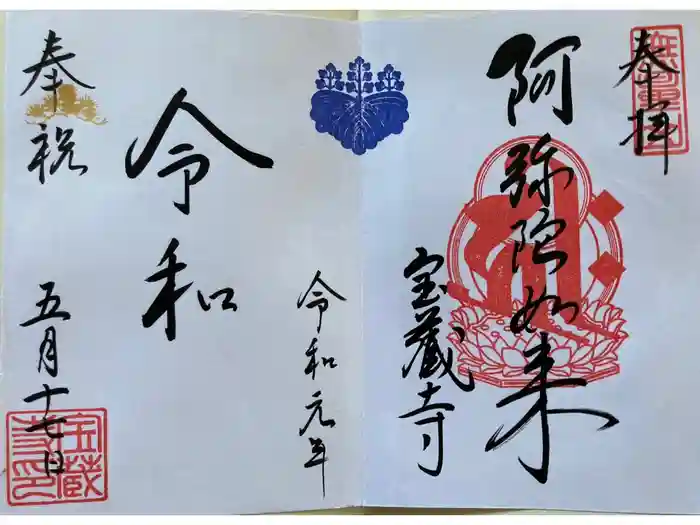 奉拝
阿弥陀如来
宝蔵寺
令和元年
令和
奉祝
五月十七日
宝蔵寺印